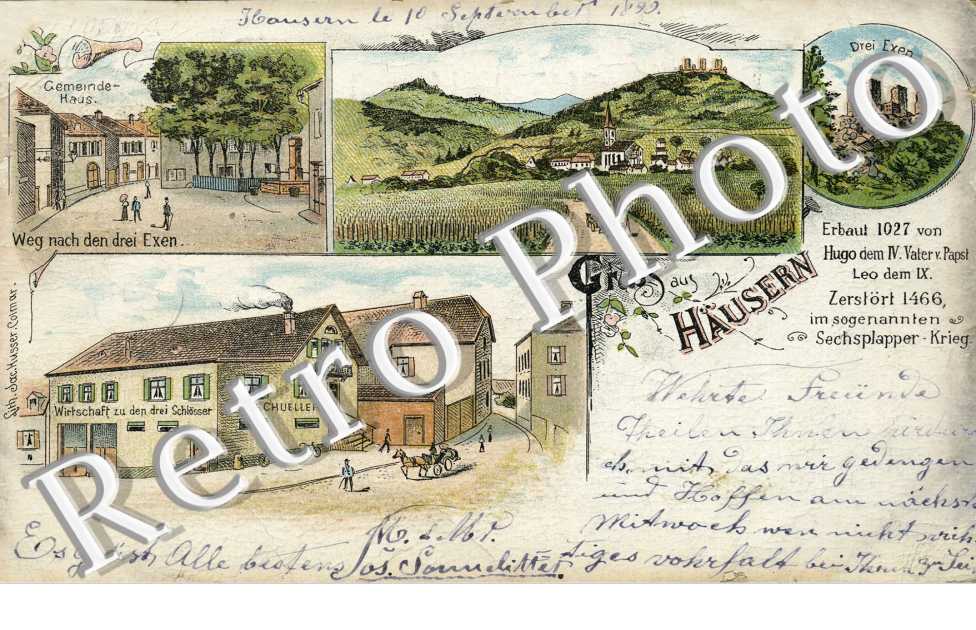 Hausern le 10 September 1899.
Gemeinde-
Haus.
Weg nach den drei Exen.
Drei Exen
Erbaut 1027 von
Hugo dem IV. Vater v. Papst
Leo dem IX.
Zerstört 1466,
im sogenannten
Sechsplapper-Krieg.
Gruss aus
HÄUSERN
Lith. Jac. Husser. Colmar.
Wirtschaft zu den drei Schlösser
CHUELLER
Wehrte Freünde
Theilen Ihnen
mit das wir gedengen
und Hoffen am
Mitwoch wen nicht
tiges vohrfalt bei Ihnen
Es grüst Alle bestens
Jos. Sonnelitter
Retro Photo